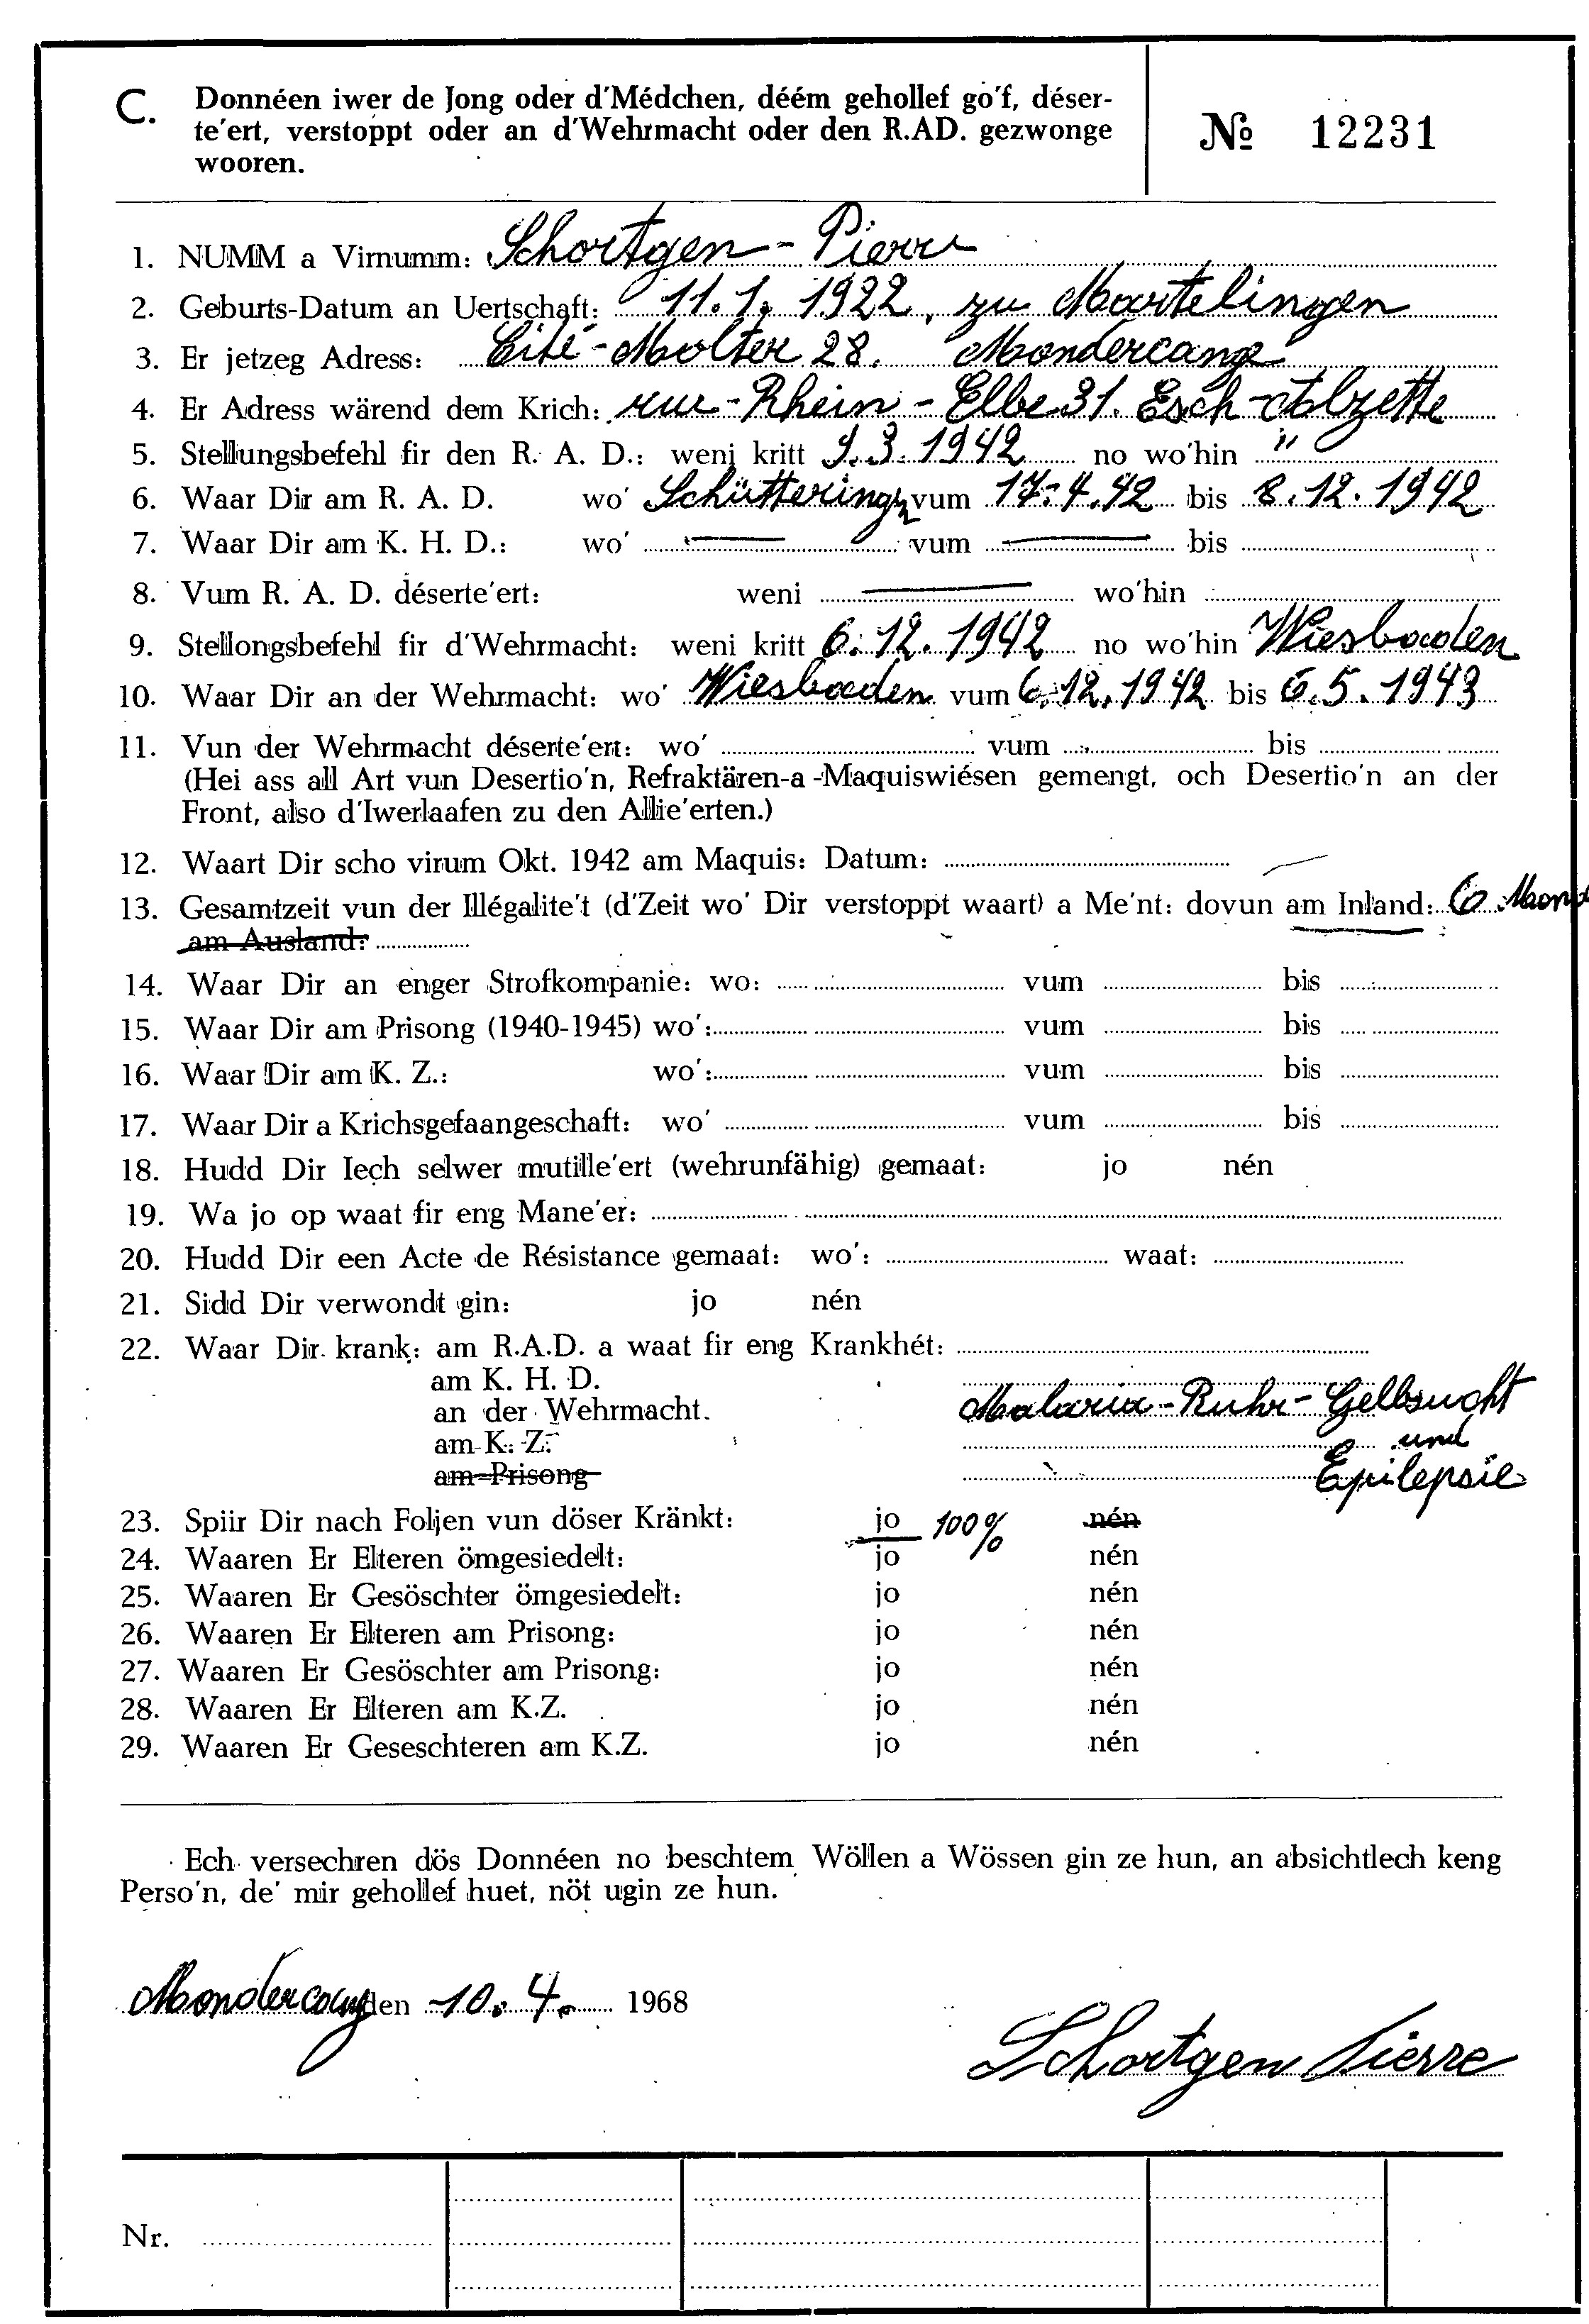 C. Donnéen iwer de Jong oder d'Médchen, déém gehollef go'f, déser-
te'ert, verstoppt oder an d'Wehrmacht oder den R.AD. gezwonge
wooren.
№ 12231
1. NUMM a Virnumm: Schortgen - Pierre
2. Geburts-Datum an Uertschaft: 11. 1. 1922, zu Martelingen
3. Er jetzeg Adress: Cité - Molter 28. Mondercange
4. Er Adress wärend dem Krich: rue - Rhein - Elbe 31. Esch-Alzette
5. Stellungsbefehl fir den R. A. D.: weni kritt 9. 3. 1942 no wo'hin "
6. Waar Dir am R. A. D. wo' Schüttering vum 17. 4. 42 bis 8. 12. 1942
7. Waar Dir am K. H. D.: wo' — vum — bis
8. Vum R. A. D. déserte'ert: weni — wo'hin
9. Stellongsbefehl fir d'Wehrmacht: weni kritt 6. 12. 1942 no wo'hin Wiesbaden
10. Waar Dir an der Wehrmacht: wo' Wiesbaden vum 6. 12. 1942 bis 6. 5. 1943
11. Vun der Wehrmacht déserte'ert: wo' vum bis
(Hei ass all Art vun Desertio'n, Refraktären-a-Maquiswiésen gemengt, och Desertio'n an der
Front, also d'Iwerlaafen zu den Allie'erten.)
12. Waart Dir scho virum Okt. 1942 am Maquis: Datum: —
13. Gesamtzeit vun der Illégalite't (d'Zeit wo' Dir verstoppt waart) a Me'nt: dovun am Inland: 6
am Ausland:
14. Waar Dir an enger Strofkompanie: wo: vum bis
15. Waar Dir am Prisong (1940-1945) wo': vum bis
16. Waar Dir am K. Z.: wo': vum bis
17. Waar Dir a Krichsgefaangeschaft: wo' vum bis
18. Hudd Dir Iech selwer mutille'ert (wehrunfähig) gemaat: jo nén
19. Wa jo op waat fir eng Mane'er:
20. Hudd Dir een Acte de Résistance gemaat: wo': waat:
21. Sidd Dir verwondt gin: jo nén
22. Waar Dir krank: am R.A.D. a waat fir eng Krankhét:
am K. H. D.
an der Wehrmacht. Malaria - Ruhr - Gelbsucht
am K. Z. und
am Prisong Epilepsie
23. Spiir Dir nach Foljen vun döser Kränkt: jo 100% nén
24. Waaren Er Elteren ömgesiedelt: jo nén
25. Waaren Er Gesöschter ömgesiedelt: jo nén
26. Waaren Er Elteren am Prisong: jo nén
27. Waaren Er Gesöschter am Prisong: jo nén
28. Waaren Er Elteren am K.Z. jo nén
29. Waaren Er Geseschteren am K.Z. jo nén
Ech versechren dös Donnéen no beschtem Wöllen a Wössen gin ze hun, an absichtlech keng
Perso'n, de' mir gehollef huet, nöt ugin ze hun.
Mondercange den 10. 4. 1968
Schortgen Pierre
Nr.